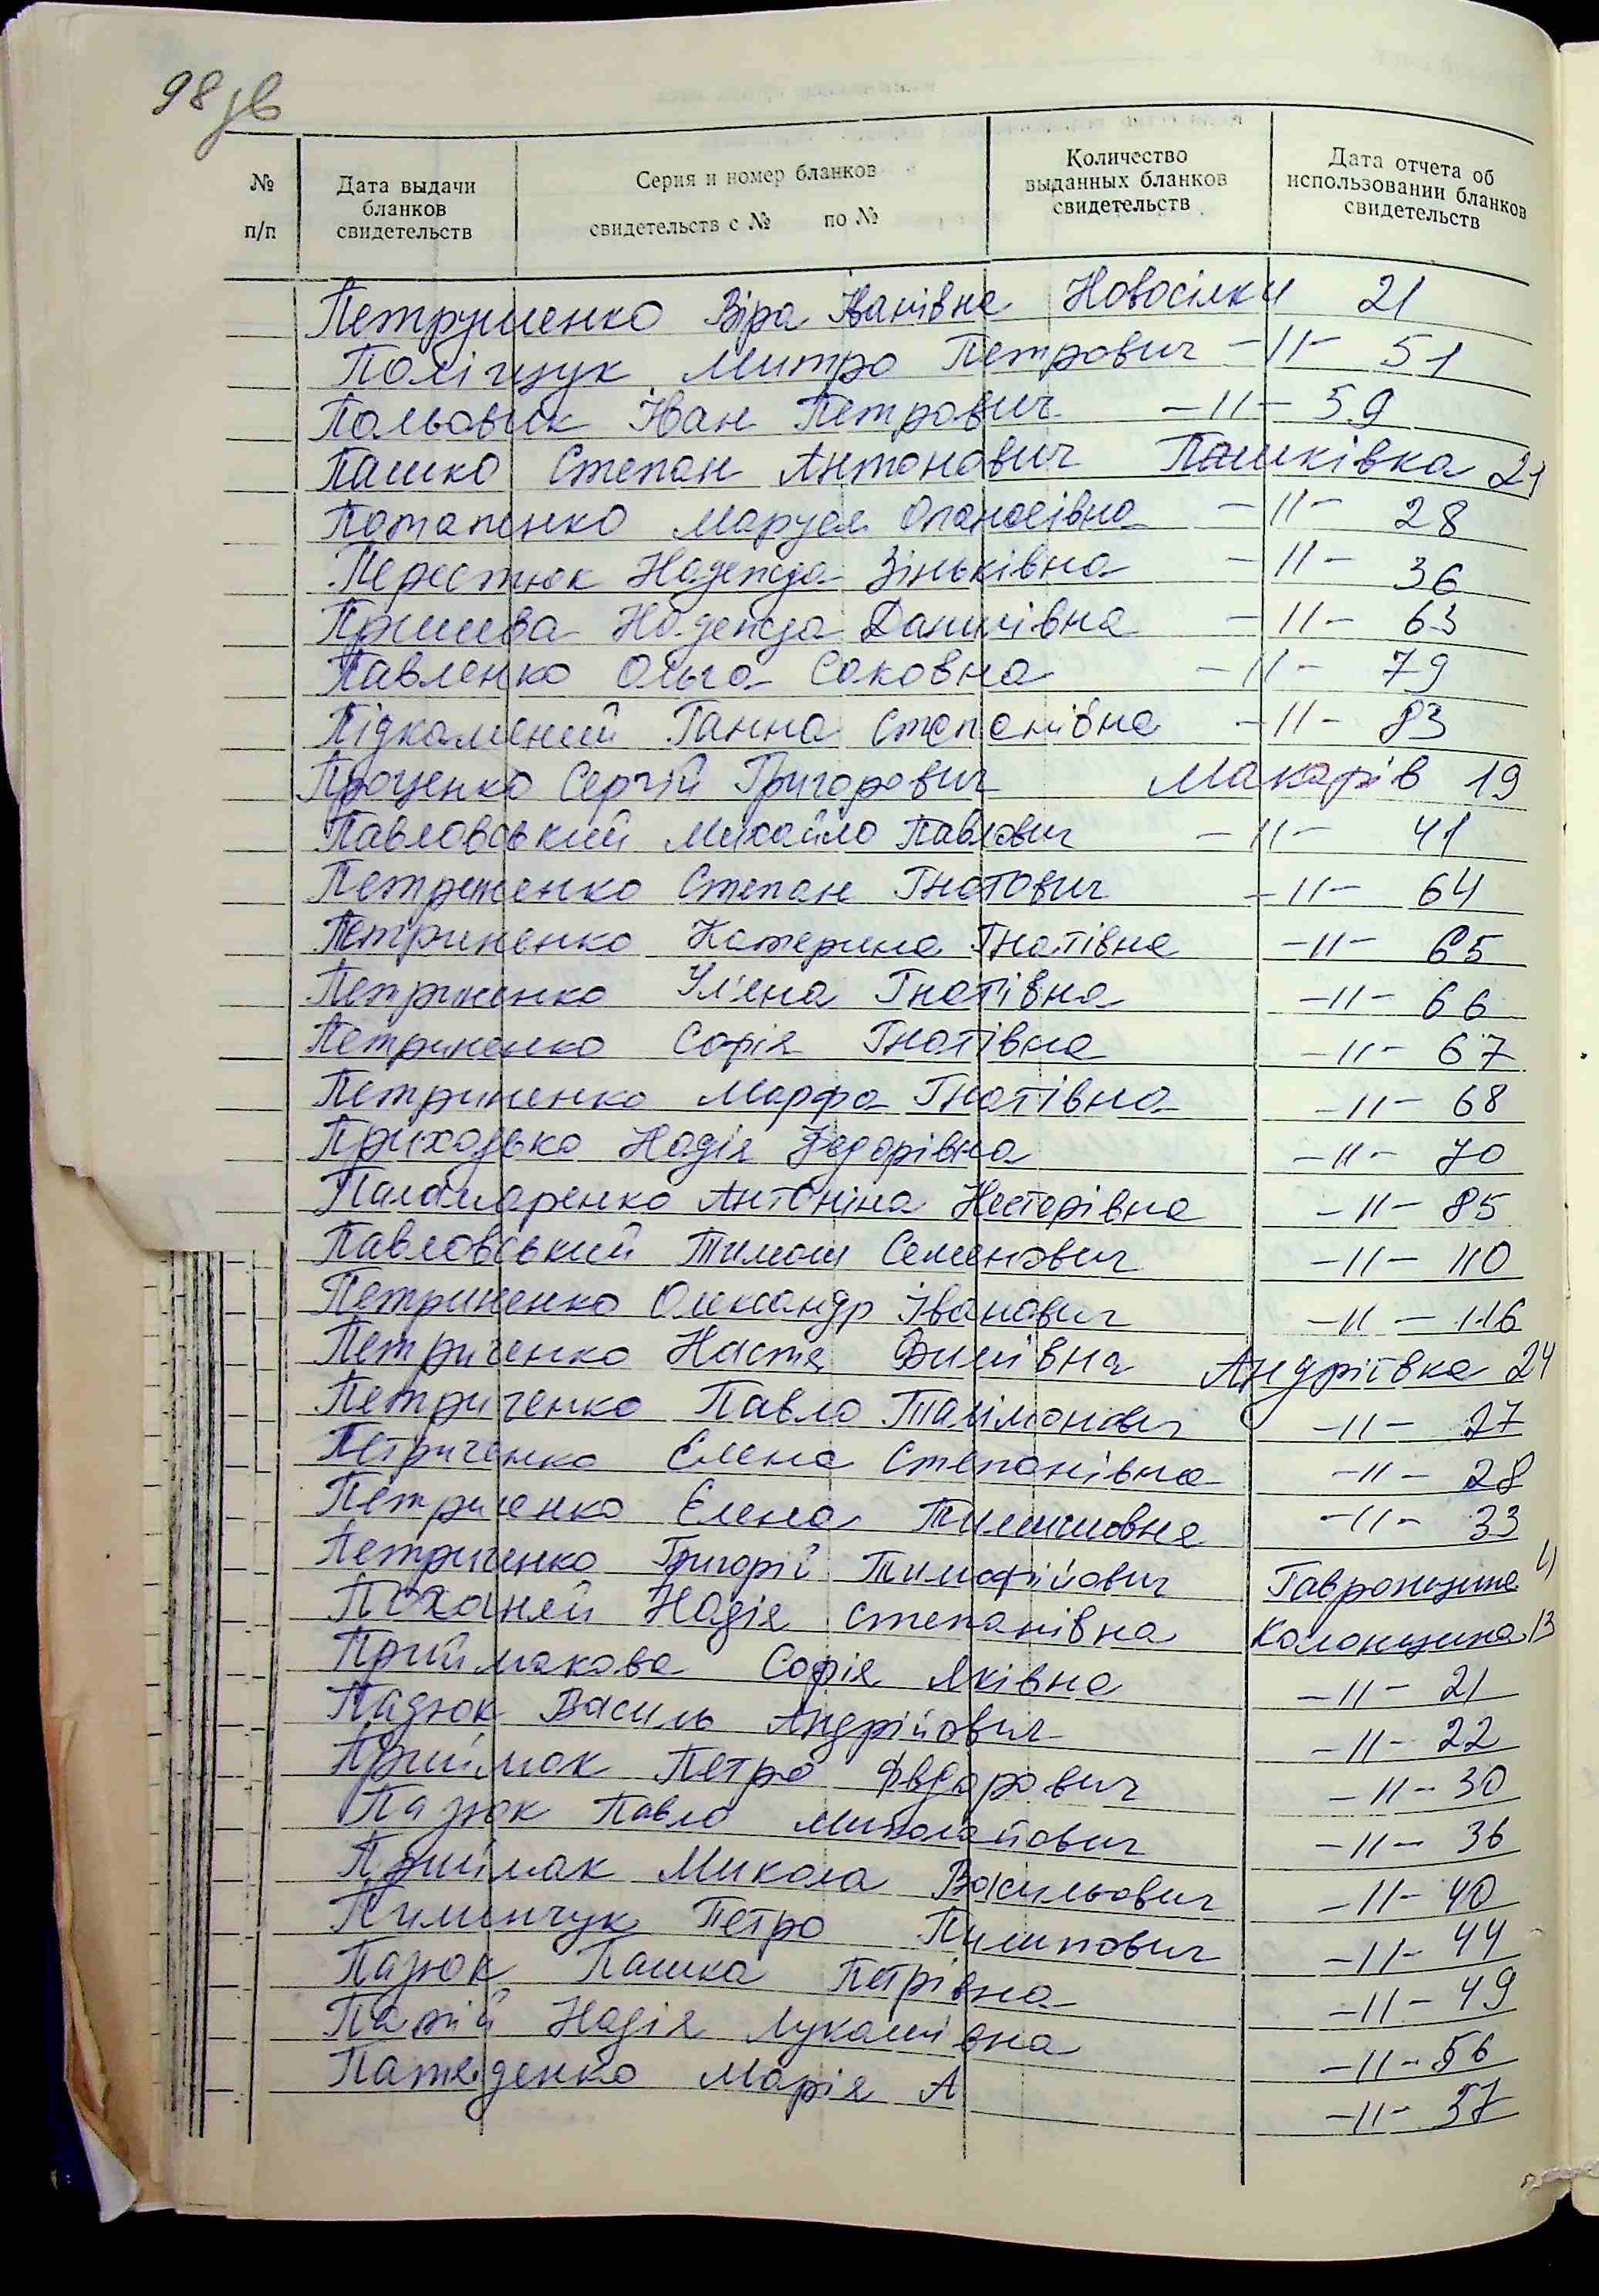 98 зв
№ п/п
Дата выдачи бланков свидетельств
Серия и номер бланков свидетельств с № по №
Количество выданных бланков свидетельств
Дата отчета об использовании бланков свидетельств
Петрушенко Віра Іванівна Новосілки 21
Поліщук Митро Петрович -11- 51
Польовик Іван Петрович -11- 59
Пашко Степан Антонович Пашківка 21
Потапенко Маруся Опанасівна -11- 28
Перестюк Надежда Зіньківна -11- 36
Надежда Данилівна -11- 63
Павленко Ольга Саковна -11- 79
Підкамений Ганна Степанівна -11- 83
Проценко Сергій Григорович Макарів 19
Павловський Михайло Павлович -11- 41
Петриненко Степан Гнатович -11- 64
Петриненко Катерина Гнатівна -11- 65
Петриненко Ул'яна Гнатівна -11- 66
Петриненко Софія Гнатівна -11- 67
Петриненко Марфа Гнатівна -11- 68
Приходько Надія Федорівна -11- 70
Паламаренко Антоніна Несторівна -11- 85
Павловський Тимош Семенович -11- 110
Петриненко Олександр Іванович -11- 116
Петриченко Настя Андріївка 24
Петриченко Павло Талімонович -11- 27
Петриченко Елена Степанівна -11- 28
Петриченко Елена Тимишовна -11- 33
Петриченко Григорій Тимофійович Гавронщина
Надія Степанівна Колонщина 13
Приймакова Софія Яківна -11- 21
Пазюк Василь Андрійович -11- 22
Приймак Петро Федорович -11- 30
Пазюк Павло Миколайович -11- 36
Приймак Микола Васильович -11- 40
Пилипчук Петро Пилипович -11- 44
Пазюк Пашка Петрівна -11- 49
Палій Надія Лукашівна -11- 56
Марія А -11- 57